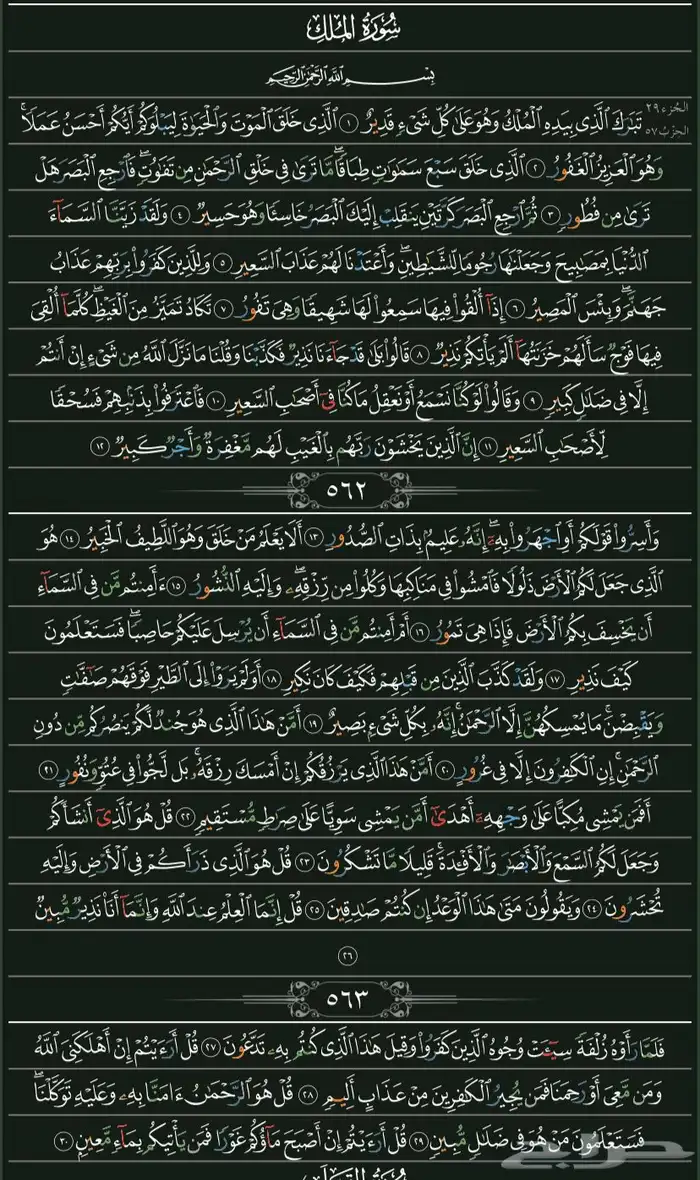 سُورَةُ المُلۡكِ
بِسۡمِ ٱللَّهِ ٱلرَّحۡمَٰنِ ٱلرَّحِيمِ
الجزء ٢٩
الحزب ٥٧
تَبَٰرَكَ ٱلَّذِي بِيَدِهِ ٱلۡمُلۡكُ وَهُوَ عَلَىٰ كُلِّ شَيۡءٖ قَدِيرٌ ١ ٱلَّذِي خَلَقَ ٱلۡمَوۡتَ وَٱلۡحَيَوٰةَ لِيَبۡلُوَكُمۡ أَيُّكُمۡ أَحۡسَنُ عَمَلٗاۚ
وَهُوَ ٱلۡعَزِيزُ ٱلۡغَفُورُ ٢ ٱلَّذِي خَلَقَ سَبۡعَ سَمَٰوَٰتٖ طِبَاقٗاۖ مَّا تَرَىٰ فِي خَلۡقِ ٱلرَّحۡمَٰنِ مِن تَفَٰوُتٖۖ فَٱرۡجِعِ ٱلۡبَصَرَ هَلۡ
تَرَىٰ مِن فُطُورٖ ٣ ثُمَّ ٱرۡجِعِ ٱلۡبَصَرَ كَرَّتَيۡنِ يَنقَلِبۡ إِلَيۡكَ ٱلۡبَصَرُ خَاسِئٗا وَهُوَ حَسِيرٞ ٤ وَلَقَدۡ زَيَّنَّا ٱلسَّمَآءَ
ٱلدُّنۡيَا بِمَصَٰبِيحَ وَجَعَلۡنَٰهَا رُجُومٗا لِّلشَّيَٰطِينِۖ وَأَعۡتَدۡنَا لَهُمۡ عَذَابَ ٱلسَّعِيرِ ٥ وَلِلَّذِينَ كَفَرُواْ بِرَبِّهِمۡ عَذَابُ
جَهَنَّمَۖ وَبِئۡسَ ٱلۡمَصِيرُ ٦ إِذَآ أُلۡقُواْ فِيهَا سَمِعُواْ لَهَا شَهِيقٗا وَهِيَ تَفُورُ ٧ تَكَادُ تَمَيَّزُ مِنَ ٱلۡغَيۡظِۖ كُلَّمَآ أُلۡقِيَ
فِيهَا فَوۡجٞ سَأَلَهُمۡ خَزَنَتُهَآ أَلَمۡ يَأۡتِكُمۡ نَذِيرٞ ٨ قَالُواْ بَلَىٰ قَدۡ جَآءَنَا نَذِيرٞ فَكَذَّبۡنَا وَقُلۡنَا مَا نَزَّلَ ٱللَّهُ مِن شَيۡءٍ إِنۡ أَنتُمۡ
إِلَّا فِي ضَلَٰلٖ كَبِيرٖ ٩ وَقَالُواْ لَوۡ كُنَّا نَسۡمَعُ أَوۡ نَعۡقِلُ مَا كُنَّا فِيٓ أَصۡحَٰبِ ٱلسَّعِيرِ ١٠ فَٱعۡتَرَفُواْ بِذَنۢبِهِمۡ فَسُحۡقٗا
لِّأَصۡحَٰبِ ٱلسَّعِيرِ ١١ إِنَّ ٱلَّذِينَ يَخۡشَوۡنَ رَبَّهُم بِٱلۡغَيۡبِ لَهُم مَّغۡفِرَةٞ وَأَجۡرٞ كَبِيرٞ ١٢
٥٦٢
وَأَسِرُّواْ قَوۡلَكُمۡ أَوِ ٱجۡهَرُواْ بِهِۦٓۖ إِنَّهُۥ عَلِيمُۢ بِذَاتِ ٱلصُّدُورِ ١٣ أَلَا يَعۡلَمُ مَنۡ خَلَقَ وَهُوَ ٱللَّطِيفُ ٱلۡخَبِيرُ ١٤ هُوَ
ٱلَّذِي جَعَلَ لَكُمُ ٱلۡأَرۡضَ ذَلُولٗا فَٱمۡشُواْ فِي مَنَاكِبِهَا وَكُلُواْ مِن رِّزۡقِهِۦۖ وَإِلَيۡهِ ٱلنُّشُورُ ١٥ ءَأَمِنتُم مَّن فِي ٱلسَّمَآءِ
أَن يَخۡسِفَ بِكُمُ ٱلۡأَرۡضَ فَإِذَا هِيَ تَمُورُ ١٦ أَمۡ أَمِنتُم مَّن فِي ٱلسَّمَآءِ أَن يُرۡسِلَ عَلَيۡكُمۡ حَاصِبٗاۖ فَسَتَعۡلَمُونَ
كَيۡفَ نَذِيرِ ١٧ وَلَقَدۡ كَذَّبَ ٱلَّذِينَ مِن قَبۡلِهِمۡ فَكَيۡفَ كَانَ نَكِيرِ ١٨ أَوَلَمۡ يَرَوۡاْ إِلَى ٱلطَّيۡرِ فَوۡقَهُمۡ صَٰٓفَّٰتٖ
وَيَقۡبِضۡنَۚ مَا يُمۡسِكُهُنَّ إِلَّا ٱلرَّحۡمَٰنُۚ إِنَّهُۥ بِكُلِّ شَيۡءِۭ بَصِيرٌ ١٩ أَمَّنۡ هَٰذَا ٱلَّذِي هُوَ جُندٞ لَّكُمۡ يَنصُرُكُم مِّن دُونِ
ٱلرَّحۡمَٰنِۚ إِنِ ٱلۡكَٰفِرُونَ إِلَّا فِي غُرُورٍ ٢٠ أَمَّنۡ هَٰذَا ٱلَّذِي يَرۡزُقُكُمۡ إِنۡ أَمۡسَكَ رِزۡقَهُۥۚ بَل لَّجُّواْ فِي عُتُوّٖ وَنُفُورٍ ٢١
أَفَمَن يَمۡشِي مُكِبًّا عَلَىٰ وَجۡهِهِۦٓ أَهۡدَىٰٓ أَمَّن يَمۡشِي سَوِيًّا عَلَىٰ صِرَٰطٖ مُّسۡتَقِيمٖ ٢٢ قُلۡ هُوَ ٱلَّذِيٓ أَنشَأَكُمۡ
وَجَعَلَ لَكُمُ ٱلسَّمۡعَ وَٱلۡأَبۡصَٰرَ وَٱلۡأَفۡـِٔدَةَۚ قَلِيلٗا مَّا تَشۡكُرُونَ ٢٣ قُلۡ هُوَ ٱلَّذِي ذَرَأَكُمۡ فِي ٱلۡأَرۡضِ وَإِلَيۡهِ
تُحۡشَرُونَ ٢٤ وَيَقُولُونَ مَتَىٰ هَٰذَا ٱلۡوَعۡدُ إِن كُنتُمۡ صَٰدِقِينَ ٢٥ قُلۡ إِنَّمَا ٱلۡعِلۡمُ عِندَ ٱللَّهِ وَإِنَّمَآ أَنَا۠ نَذِيرٞ مُّبِينٞ
٢٦
٥٦٣
فَلَمَّا رَأَوۡهُ زُلۡفَةٗ سِيٓـَٔتۡ وُجُوهُ ٱلَّذِينَ كَفَرُواْ وَقِيلَ هَٰذَا ٱلَّذِي كُنتُم بِهِۦ تَدَّعُونَ ٢٧ قُلۡ أَرَءَيۡتُمۡ إِنۡ أَهۡلَكَنِيَ ٱللَّهُ
وَمَن مَّعِيَ أَوۡ رَحِمَنَا فَمَن يُجِيرُ ٱلۡكَٰفِرِينَ مِنۡ عَذَابٍ أَلِيمٖ ٢٨ قُلۡ هُوَ ٱلرَّحۡمَٰنُ ءَامَنَّا بِهِۦ وَعَلَيۡهِ تَوَكَّلۡنَاۖ
فَسَتَعۡلَمُونَ مَنۡ هُوَ فِي ضَلَٰلٖ مُّبِينٖ ٢٩ قُلۡ أَرَءَيۡتُمۡ إِنۡ أَصۡبَحَ مَآؤُكُمۡ غَوۡرٗا فَمَن يَأۡتِيكُم بِمَآءٖ مَّعِينِۭ ٣٠